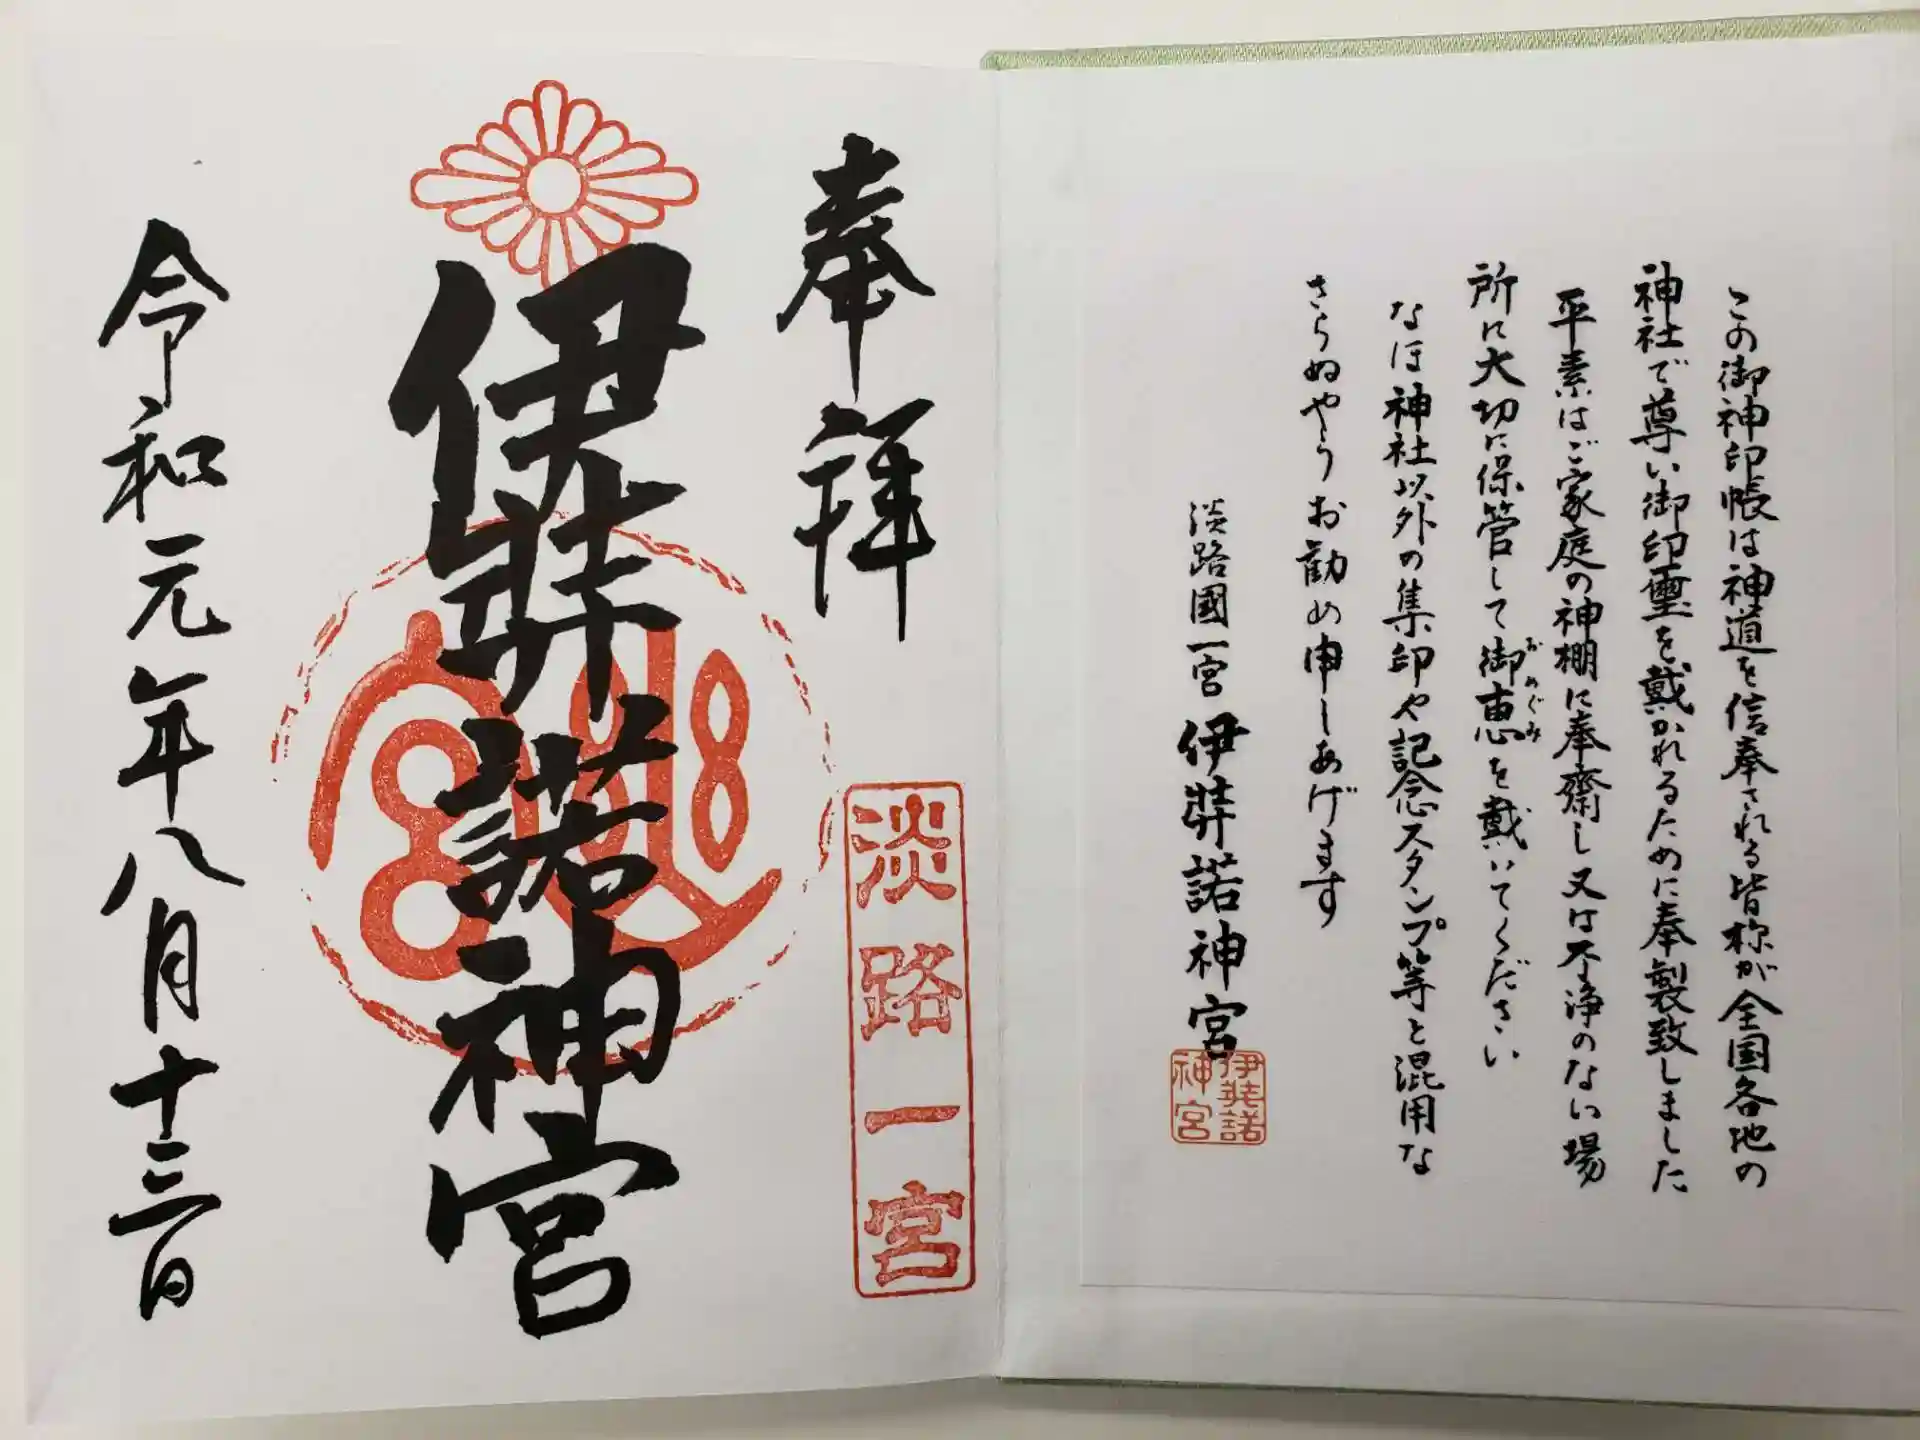 この御神印帳は神道を信奉される皆様が全国各地の
神社で尊い御印璽を戴かれるために奉製致しました
平素はご家庭の神棚に奉齋し又は不浄のない場
所に大切に保管して御恵を戴いてください
おめぐみ
なほ神社以外の集印や記念スタンプ等と混用な
さらぬやうお勧め申しあげます
淡路國一宮 伊弉諾神宮
伊弉諾
神宮
奉拝
淡路一宮
伊弉諾神宮
令和元年八月十三日